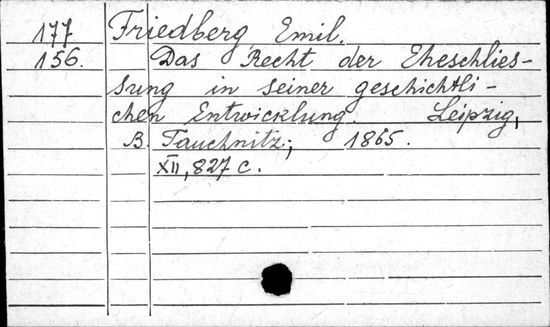 177 Friedberg, Emil.
156. Das Recht der Eheschlies-
sung in seiner geschichtli-
chen Entwicklung. Leipzig,
B. Tauchnitz, 1865.
XII, 827 c.